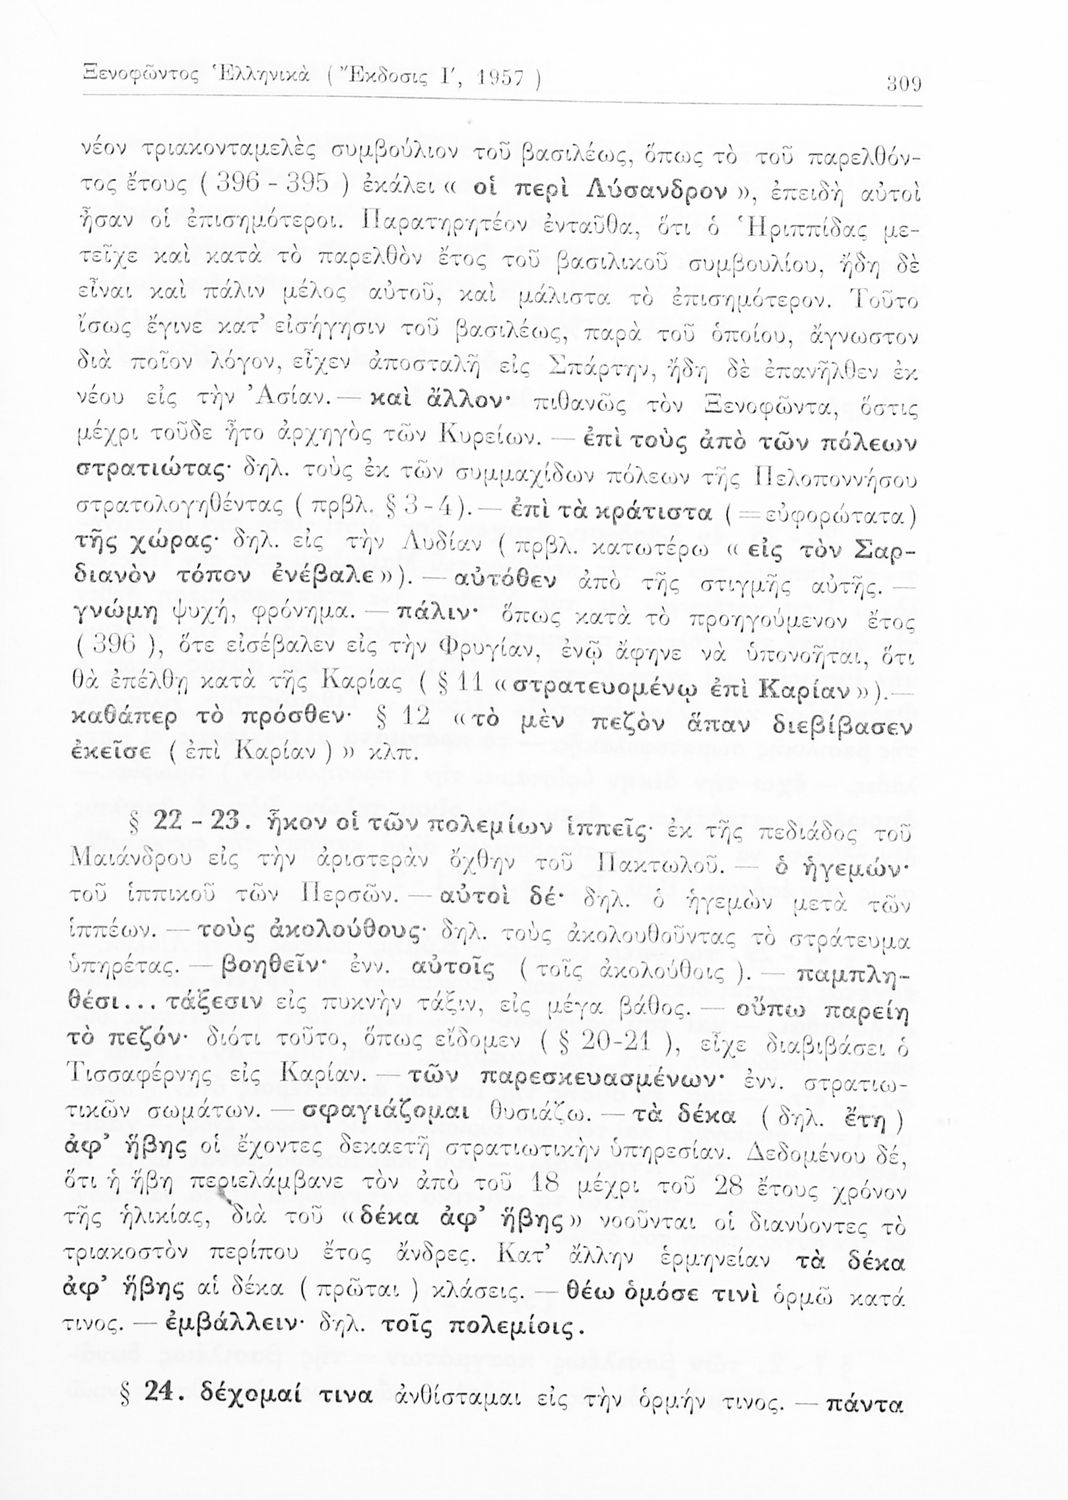 Ξενοφῶντος Ἑλληνικὰ ( Ἔκδοσις Ι΄, 1957 ) 309
νέον τριακονταμελὲς συμβούλιον τοῦ βασιλέως, ὅπως τὸ τοῦ παρελθόν-
τος ἔτους ( 396 - 395 ) ἐκάλει « οἱ περὶ Λύσανδρον », ἐπειδὴ αὐτοὶ
ἦσαν οἱ ἐπισημότεροι. Παρατηρητέον ἐνταῦθα, ὅτι ὁ Ἡριππίδας με-
τεῖχε καὶ κατὰ τὸ παρελθὸν ἔτος τοῦ βασιλικοῦ συμβουλίου, ἤδη δὲ
εἶναι καὶ πάλιν μέλος αὐτοῦ, καὶ μάλιστα τὸ ἐπισημότερον. Τοῦτο
ἴσως ἔγινε κατ’ εἰσήγησιν τοῦ βασιλέως, παρὰ τοῦ ὁποίου, ἄγνωστον
διὰ ποῖον λόγον, εἶχεν ἀποσταλῆ εἰς Σπάρτην, ἤδη δὲ ἐπανῆλθεν ἐκ
νέου εἰς τὴν Ἀσίαν. — καὶ ἄλλον· πιθανῶς τὸν Ξενοφῶντα, ὅστις
μέχρι τοῦδε ἦτο ἀρχηγὸς τῶν Κυρείων. — ἐπὶ τοὺς ἀπὸ τῶν πόλεων
στρατιώτας· δηλ. τοὺς ἐκ τῶν συμμαχίδων πόλεων τῆς Πελοποννήσου
στρατολογηθέντας ( πρβλ. § 3 - 4 ). — ἐπὶ τὰ κράτιστα ( = εὐφορώτατα )
τῆς χώρας· δηλ. εἰς τὴν Λυδίαν ( πρβλ. κατωτέρω « εἰς τὸν Σαρ-
διανὸν τόπον ἐνέβαλε » ). — αὐτόθεν ἀπὸ τῆς στιγμῆς αὐτῆς. —
γνώμη ψυχή, φρόνημα. — πάλιν· ὅπως κατὰ τὸ προηγούμενον ἔτος
( 396 ), ὅτε εἰσέβαλεν εἰς τὴν Φρυγίαν, ἐνῷ ἄφηνε νὰ ὑπονοῆται, ὅτι
θὰ ἐπέλθῃ κατὰ τῆς Καρίας ( § 11 « στρατευομένῳ ἐπὶ Καρίαν » ). —
καθάπερ τὸ πρόσθεν· § 12 « τὸ μὲν πεζὸν ἅπαν διεβίβασεν
ἐκεῖσε ( ἐπὶ Καρίαν ) » κλπ.
§ 22 - 23. ἧκον οἱ τῶν πολεμίων ἱππεῖς· ἐκ τῆς πεδιάδος τοῦ
Μαιάνδρου εἰς τὴν ἀριστερὰν ὄχθην τοῦ Πακτωλοῦ. — ὁ ἡγεμών·
τοῦ ἱππικοῦ τῶν Περσῶν. — αὐτοὶ δέ· δηλ. ὁ ἡγεμὼν μετὰ τῶν
ἱππέων. — τοὺς ἀκολούθους· δηλ. τοὺς ἀκολουθοῦντας τὸ στράτευμα
ὑπηρέτας. — βοηθεῖν· ἐνν. αὐτοῖς ( τοῖς ἀκολούθοις ). — παμπλη-
θέσι... τάξεσιν εἰς πυκνὴν τάξιν, εἰς μέγα βάθος. — οὔπω παρείη
τὸ πεζόν· διότι τοῦτο, ὅπως εἴδομεν ( § 20-21 ), εἶχε διαβιβάσει ὁ
Τισσαφέρνης εἰς Καρίαν. — τῶν παρεσκευασμένων· ἐνν. στρατιω-
τικῶν σωμάτων. — σφαγιάζομαι θυσιάζω. — τὰ δέκα ( δηλ. ἔτη )
ἀφ’ ἥβης οἱ ἔχοντες δεκαετῆ στρατιωτικὴν ὑπηρεσίαν. Δεδομένου δέ,
ὅτι ἡ ἥβη περιελάμβανε τὸν ἀπὸ τοῦ 18 μέχρι τοῦ 28 ἔτους χρόνον
τῆς ἡλικίας, διὰ τοῦ « δέκα ἀφ’ ἥβης » νοοῦνται οἱ διανύοντες τὸ
τριακοστὸν περίπου ἔτος ἄνδρες. Κατ’ ἄλλην ἑρμηνείαν τὰ δέκα
ἀφ’ ἥβης αἱ δέκα ( πρῶται ) κλάσεις. — θέω ὁμόσε τινὶ ὁρμῶ κατά
τινος. — ἐμβάλλειν· δηλ. τοῖς πολεμίοις.
§ 24. δέχομαί τινα ἀνθίσταμαι εἰς τὴν ὁρμήν τινος. — πάντα